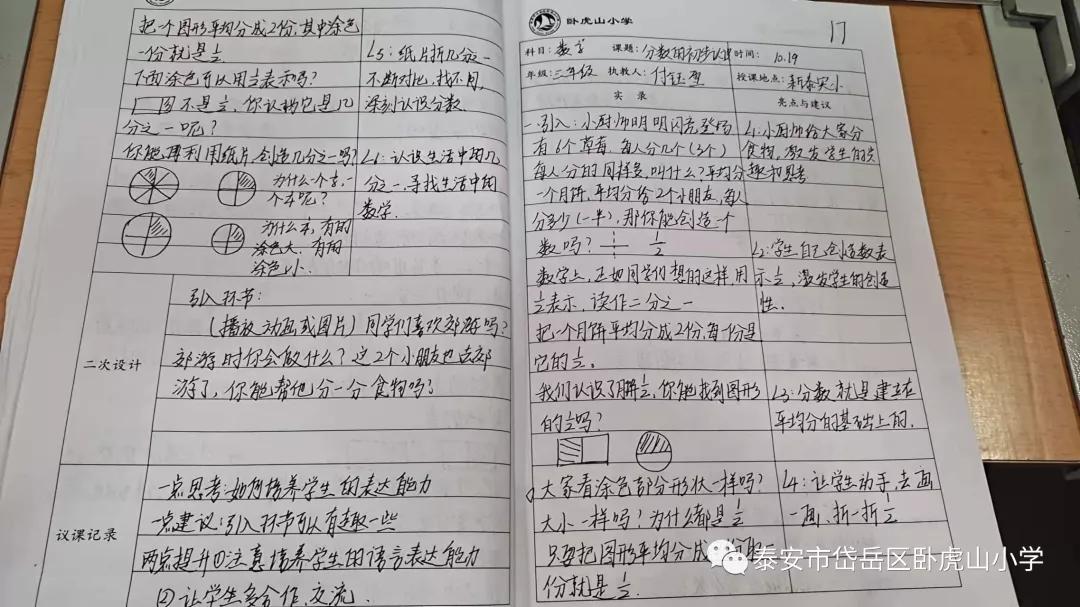 把一个图形平均分成2份,其中涂色
一份就是½
下面涂色可以用½表示吗?
不是½,你认为它是几
分之一呢?
你能再利用纸片,创造几分之一吗?
为什么一个
为什么 有的
涂色大、有的
涂色小.
L5:纸片折几分之一
不断对比,找不同,
深刻认识分数.
L6:认识生活中的几
分之一,寻找生活中的
数学.
二次设计
引入环节:
(播放动画或图片)同学们喜欢郊游吗?
郊游时你会做什么?这2个小朋友也去郊
游了,你能帮他分一分食物吗?
议课记录
一点思考:如何培养学生的表达能力
一点建议:引入环节可以有趣一些
两点提升①注意培养学生的语言表达能力
②让学生多合作,交流.
卧虎山小学
17
科目:数学 课题:分数的初步认识 时间:10.19
年级:三年级 执教人:付钰 授课地点:新泰实小
实 录
亮点与建议
一.引入:小厨师明明闪亮登场
有6个草莓,每人分几个(3个)
每人分的同样多,叫什么?平均分
一个月饼,平均分给2个小朋友,每人
分多少(一半),那你能创造一个
数吗? ½
数学上,正如同学们想的这样,用
½表示,读作二分之一
把一个月饼平均分成2份,每份是
它的½。
我们认识了月饼½,你能找到图形
的½吗?
大家看涂色部分形状一样吗?
大小一样吗?为什么都是½
只要把图形平均分成
份就是½.
L1:小厨师给大家分
食物,激发学生的兴
趣和思考
L2:学生自己创造数表
示½,激发学生的创造
性.
L3:分数就是建立在
平均分的基础上的.
L4:让学生动手,去画
一画、折一折½
泰安市岱岳区卧虎山小学